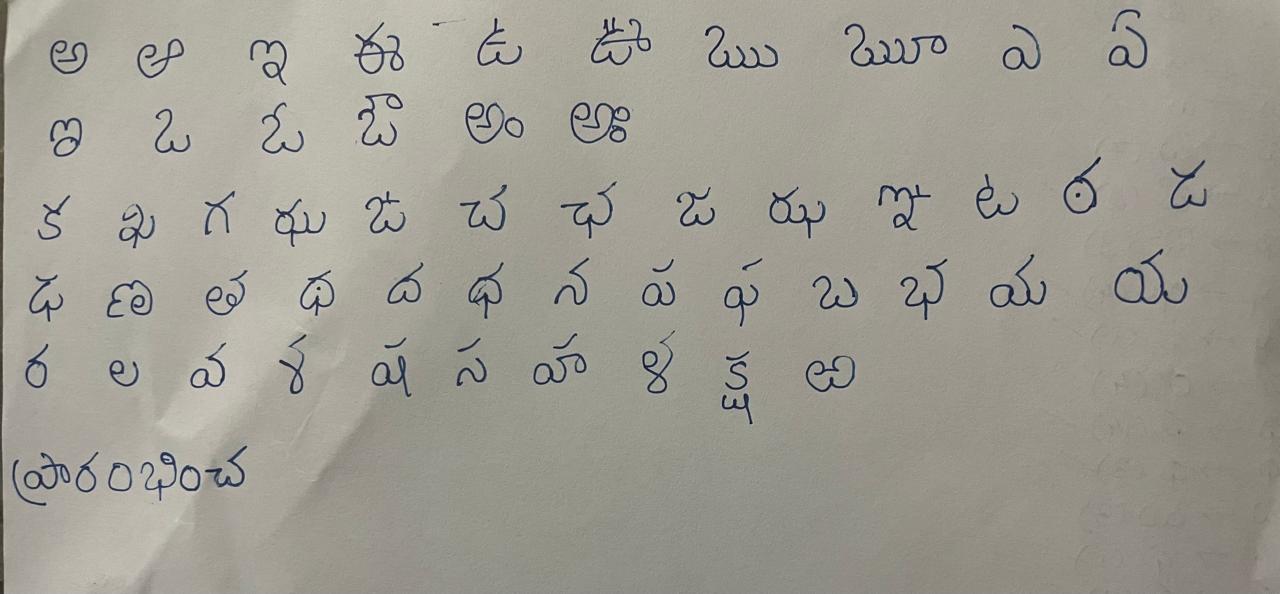 అ ఆ ఇ ఈ ఉ ఊ ఋ ౠ ఎ ఏ
ఐ ఒ ఓ ఔ అం అః
క ఖ గ ఘ ఙ చ ఛ జ ఝ ఞ ట ఠ డ
ఢ ణ త థ ద ధ న ప ఫ బ భ మ య
ర ల వ శ ష స హ ళ క్ష ఱ
ప్రారంభించ